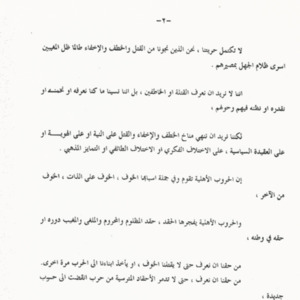 -٢-
لا تكتمل حريتنا ، نحن الذين نجونا من القتل والخطف والإخفاء طالما ظل المغيبين
اسرى ظلام الجهل بمصيرهم .
اننا لا نريد ان نعرف القتلة او الخاطفين ، بل اننا نسينا ما كنا نعرفه او نخمنه او
نقدره او نظنه فيهم وحولهم ،
لكننا نريد ان ننهي مناخ الخطف والإخفاء والقتل على النية او على الهوية او
على العقيدة السياسية ، على الاختلاف الفكري او الاختلاف الطائفي او التمايز المذهبي .
إن الحروب الأهلية تقوم وفي جملة اسبابها الخوف ، الخوف على الذات ، الخوف
من الآخر ،
والحروب الأهلية يفجرها الحقد ، حقد المظلوم والمحروم والملغي والمغيب دوره او
حقه في وطنه ،
من حقنا ان نعرف ، حتى لا يقتلنا الخوف ، او يأخذ ابناءنا الى الحرب مرة اخرى .
من حقنا ان نعرف حتى لا تدمر الأحقاد المترسبة من حرب انقضت الى حروب
جديدة ،